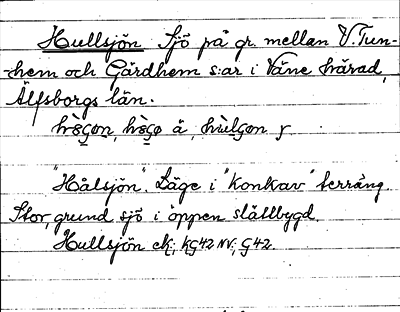 Hullsjön Sjö på gr. mellan V. Tun-
-hem och Gärdhem s:ar i Väne härad,
Älfsborgs län.
å,
"Hålsjön". Läge i "konkav" terräng.
Stor, grund sjö i öppen slättbygd.
Hullsjön ek; kG42 NV; G42.